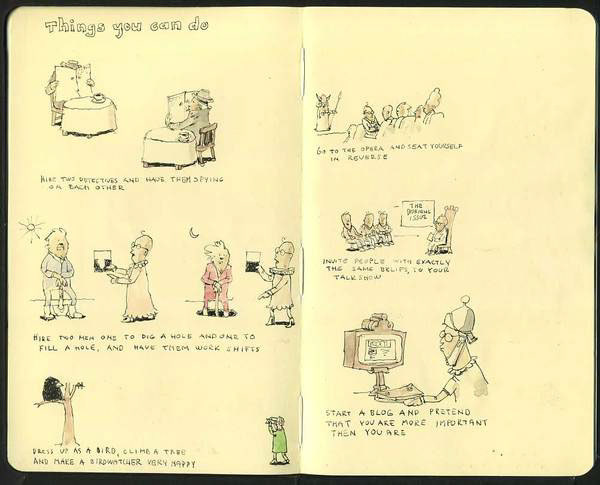 Things you can do
HIRE TWO DETECTIVES AND HAVE THEM SPYING
ON EACH OTHER
HIRE TWO MEN ONE TO DIG A HOLE AND ONE TO
FILL A HOLE, AND HAVE THEM WORK SHIFTS
DRESS UP AS A BIRD, CLIMB A TREE
AND MAKE A BIRDWATCHER VERY HAPPY
GO TO THE OPERA AND SEAT YOURSELF
IN REVERSE
THE
BORING
ISSUE
INVITE PEOPLE WITH EXACTLY
THE SAME BELIFS, TO YOUR
TALKSHOW
START A BLOG AND PRETEND
THAT YOU ARE MORE IMPORTANT
THEN YOU ARE